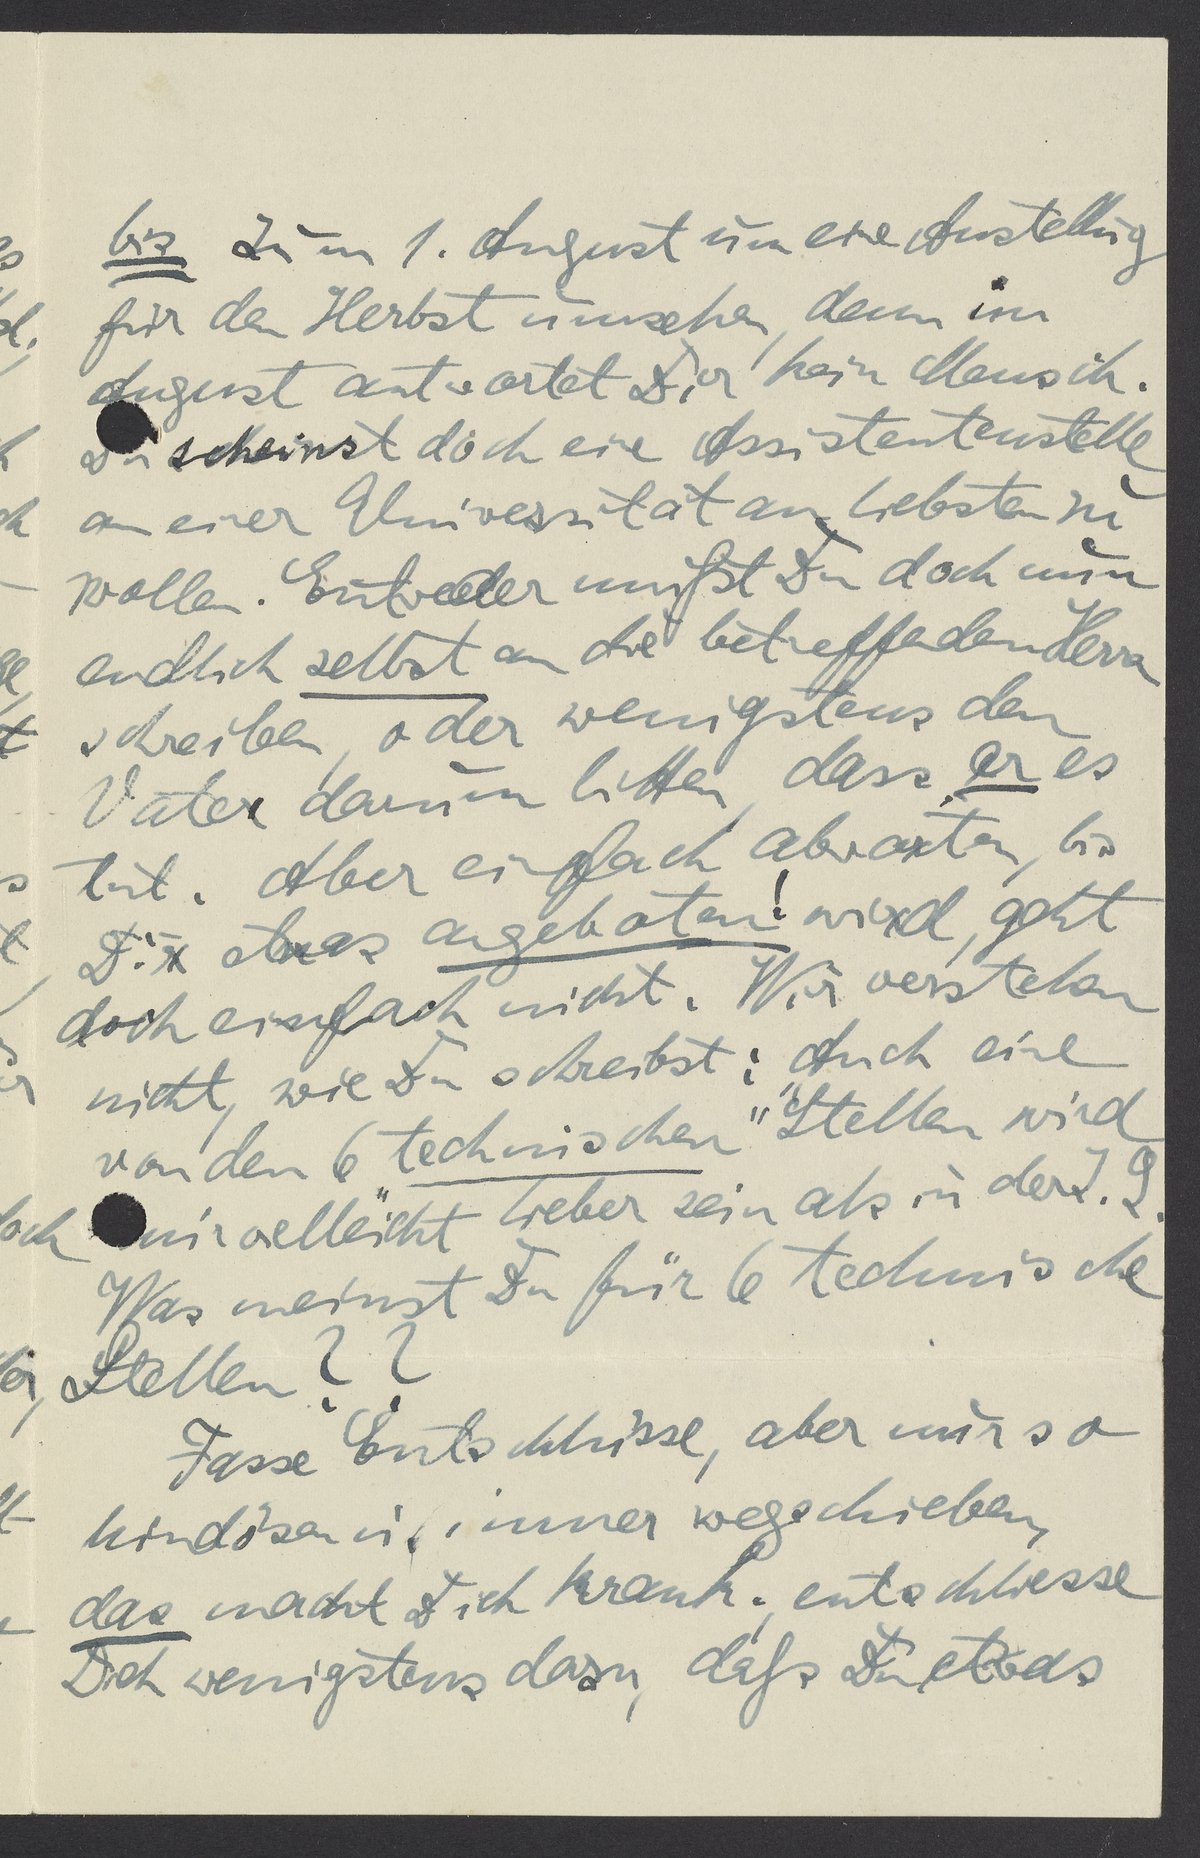 bis zum 1. August um eine Anstellung
für den Herbst umsehen, denn im
August antwortet Dir kein Mensch.
Du scheinst doch eine Assistentenstelle
an einer Universität am liebsten zu
wollen. Entweder mußt Du doch nun
endlich selbst an die betreffenden Herrn
schreiben, oder wenigstens den
Vater darum bitten, dass er es
tut. Aber einfach abwarten, bis
Dir etwas angeboten! wird, geht
doch einfach nicht. Wir verstehen
nicht, wie Du schreibst: Auch eine
von den 6 "technischen" Stellen wird
mir vielleicht lieber sein als in der I. G.
Was meinst Du für 6 technische
Stellen??
Fasse Entschlüsse, aber nur so
hindösen u. immer wegschieben,
das macht Dich krank; entschliesse
Dich wenigstens dazu, daß Du etwas